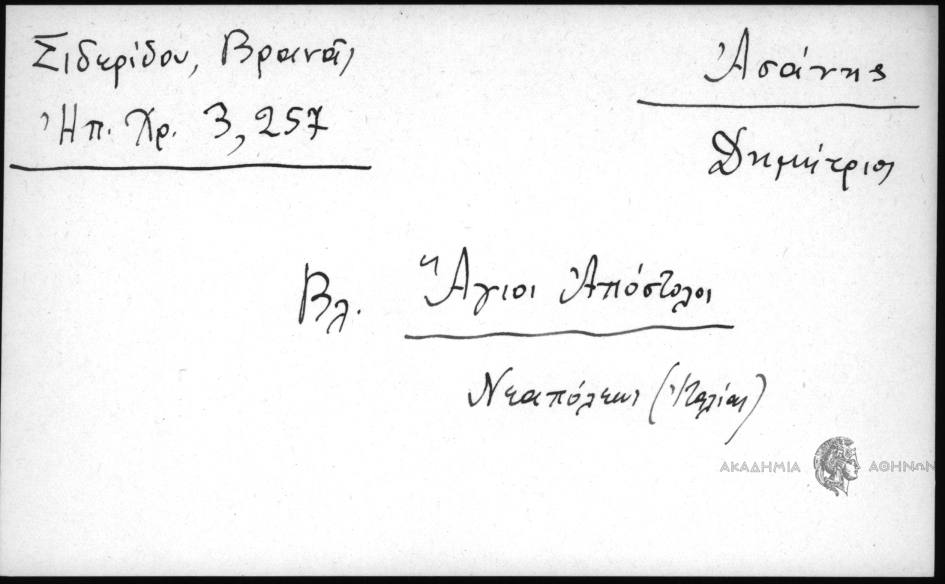 Σιδερίδου, Βρανᾶς
Ἠπ. Χρ. 3, 257
Ἀσάνης
Δημήτριος
Βλ. Ἅγιοι Ἀπόστολοι
Νεαπόλεως (Ἰταλίας)
ΑΚΑΔΗΜΙΑ ΑΘΗΝΩΝ